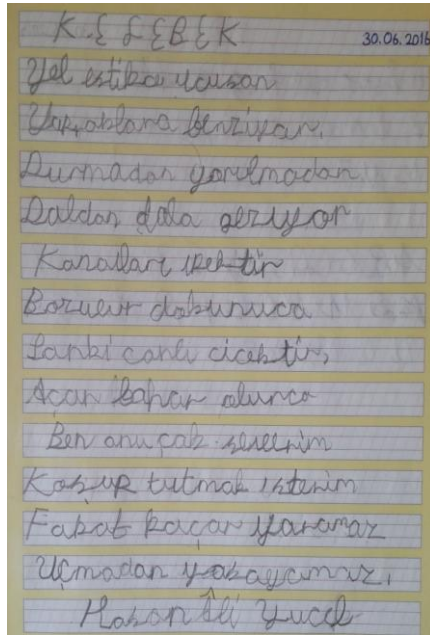 KELEBEK
30.06.2016
Yel estikçe uçuşan
Yapraklara benziyor,
Durmadan yorulmadan
Daldan dala geziyor
Kanatları ipektir
Bozulur dokununca
Sanki canlı çiçektir,
Açar bahar olunca
Ben onu çok severim
Koşup tutmak isterim
Fakat kaçar yaramaz
Uçmadan yapayamaz,
Hasan Âli Yücel